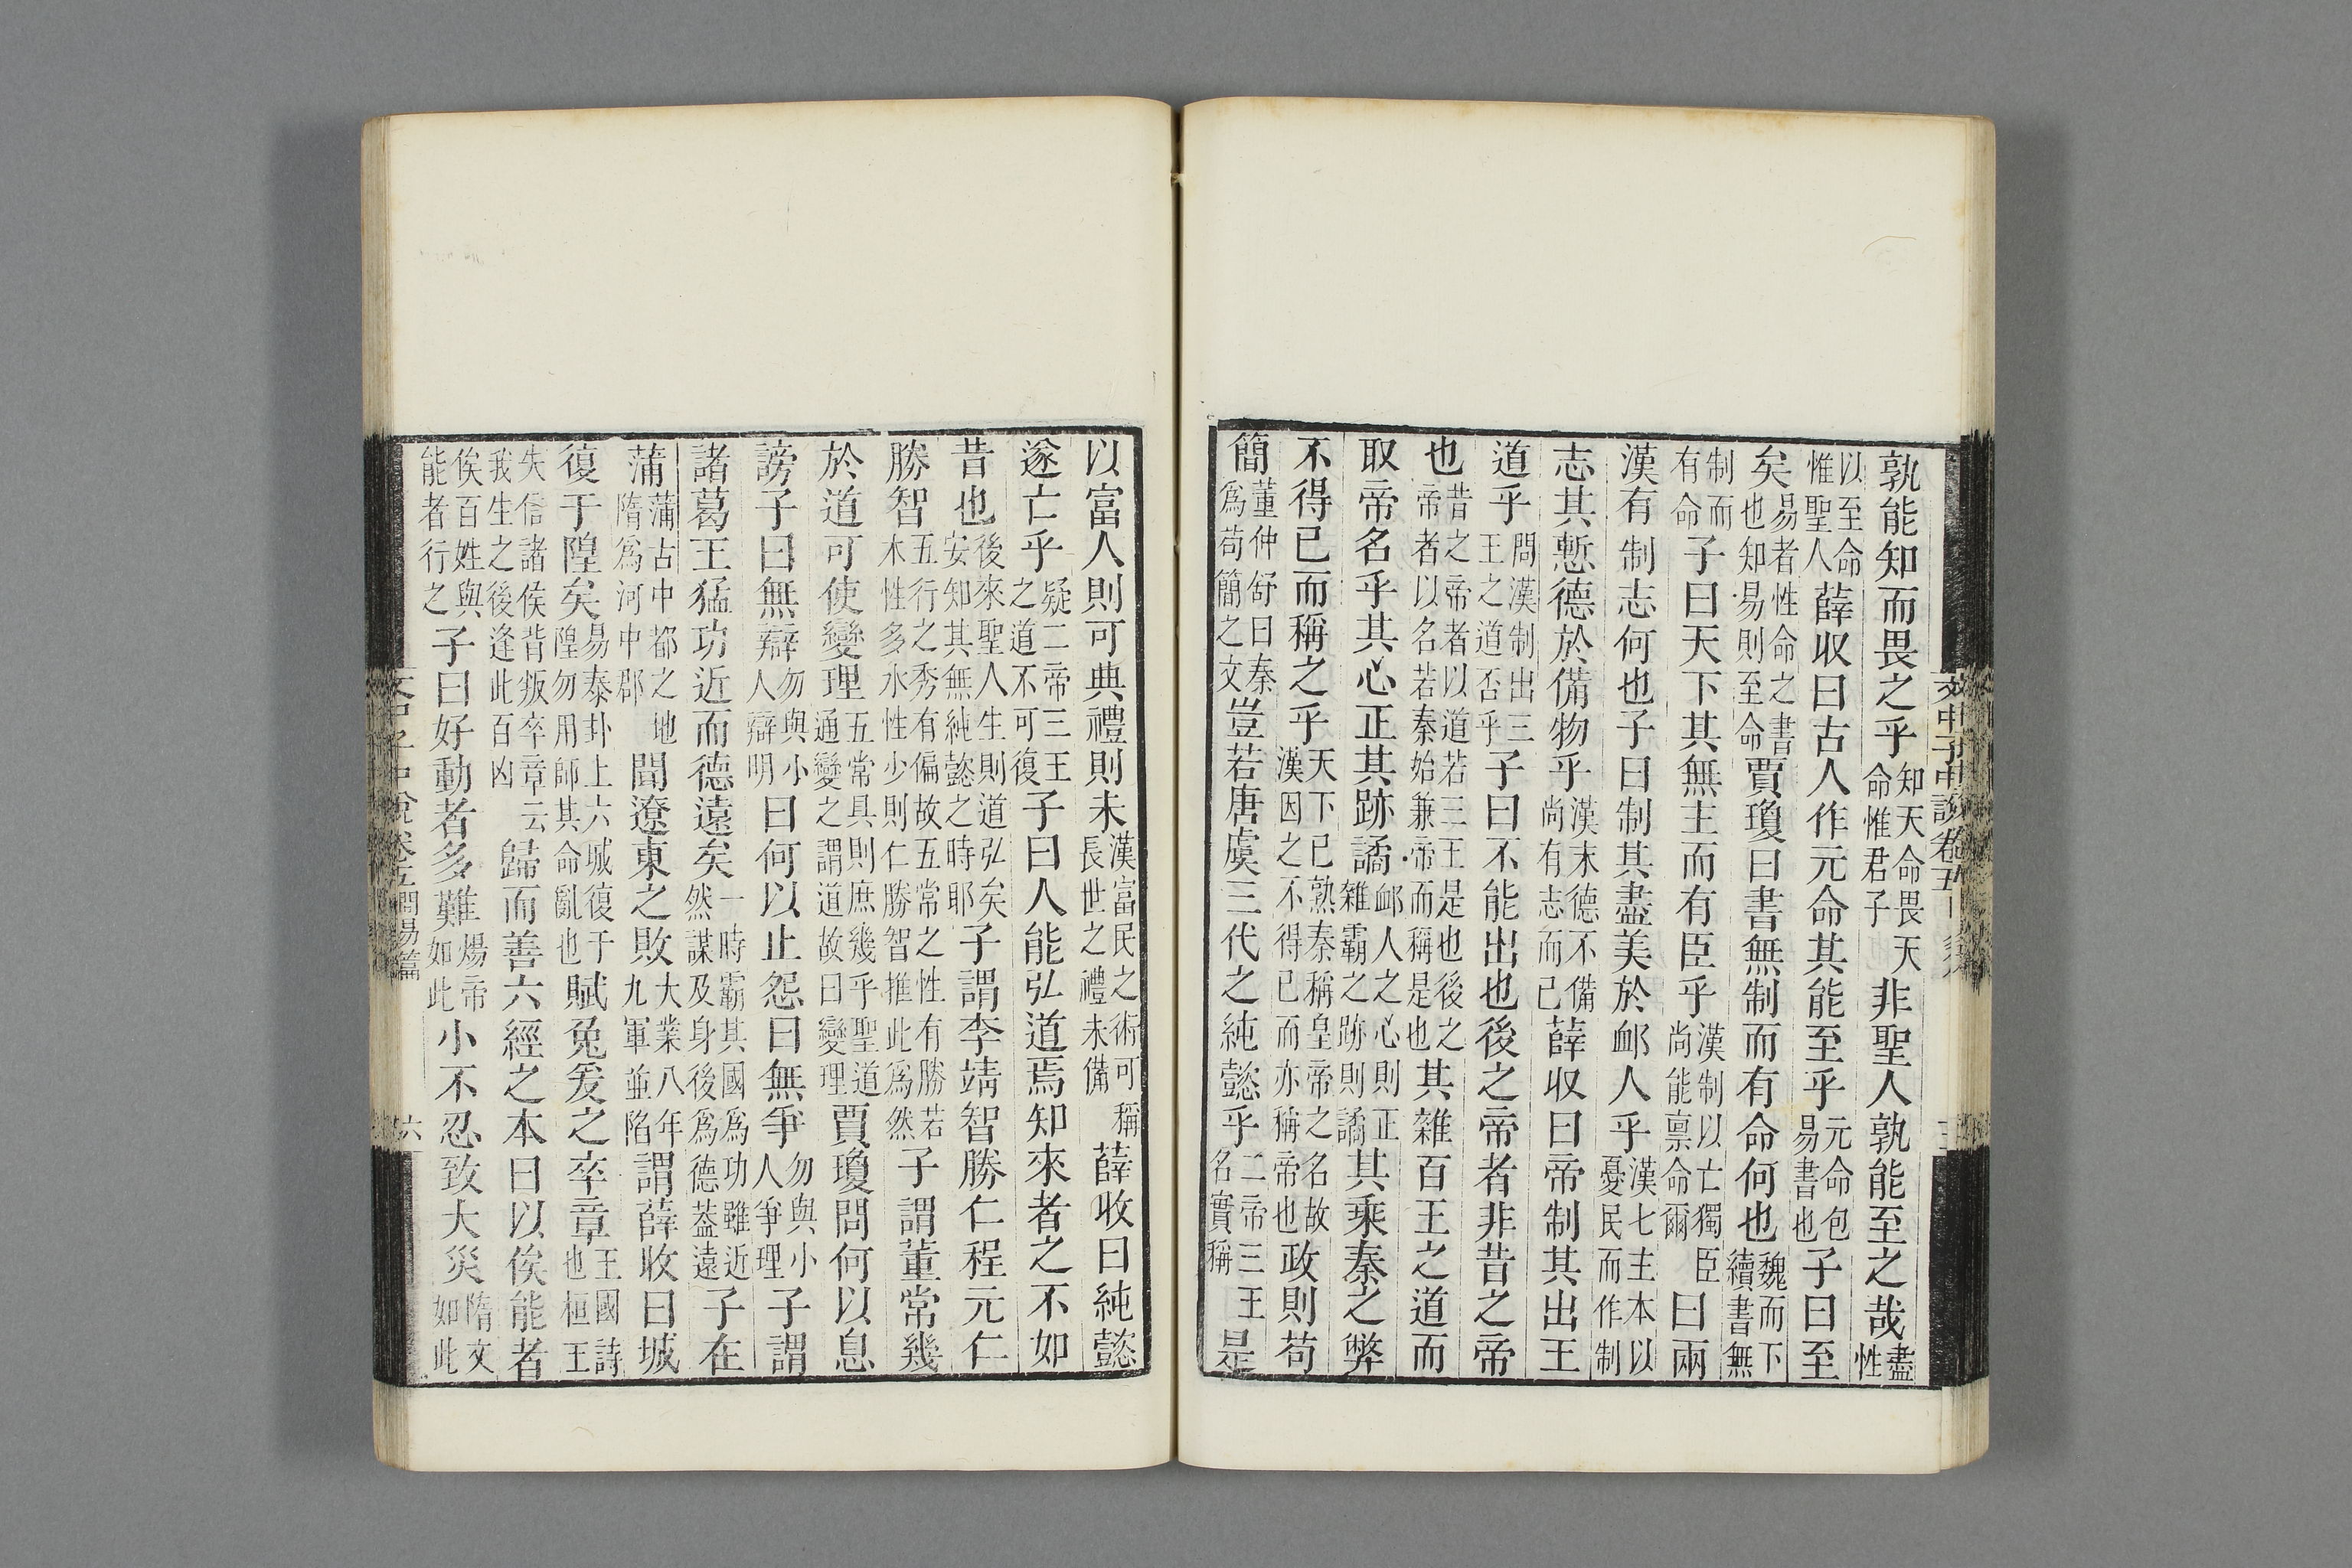 孰能知而畏之乎知天命畏天命惟君子非聖人孰能至之哉盡性
以至命惟聖人薛収曰古人作元命其能至乎元命包易書也子曰至
矣易者性命之書也知易則至命賈瓊曰書無制而有命何也魏而下續書無
制而有命子曰天下其無主而有臣乎漢制以亡獨臣尚能禀命爾曰兩
漢有制志何也子曰制其盡美於䘏人乎漢七主本以憂民而作制
志其慙德於備物乎漢末德不備尚有志而已薛収曰帝制其出王
道乎問漢制出三王之道否乎子曰不能出也後之帝者非昔之帝
也昔之帝者以道若三王是也後之帝者以名若秦始兼帝而稱是也其雜百王之道而
取帝名乎其心正其跡譎䘏人之心則正雜霸之跡則譎其乗秦之弊
不得已而稱之乎天下已熟秦稱皇帝之名故漢因之不得已而亦稱帝也政則苟
簡董仲舒曰秦爲苟簡之文豈若唐虞三代之純懿乎二帝三王名實稱是
以富人則可典禮則未漢富民之術可稱長世之禮未備薛收曰純懿
遂亡乎疑二帝三王之道不可復子曰人能弘道焉知來者之不如
昔也後來聖人生則道弘矣安知其無純懿之時耶子謂李靖智勝仁程元仁
勝智五行之秀有偏故五常之性有勝若木性多水性少則仁勝智推此爲然子謂董常幾
於道可使變理五常具則庶幾乎聖道通變之謂道故曰變理賈瓊問何以息
謗子曰無辯勿與小人辯明曰何以止怨曰無爭勿與小人爭理子謂
諸葛王猛功近而德遠矣一時霸其國爲功雖近然謀及身後爲德葢遠子在
蒲蒲古中都之地隋爲河中郡聞遼東之敗大業八年九軍並陷謂薛收曰城
復于隍矣易泰卦上六城復于隍勿用師其命亂也賦兔爰之卒章王國詩也桓王
失信諸侯背叛卒章云我生之後逢此百凶歸而善六經之本曰以俟能者
俟百姓與能者行之子曰好動者多難煬帝如此小不忍致大災隋文如此
文中子中說卷五
文中子中說卷五問易篇
六